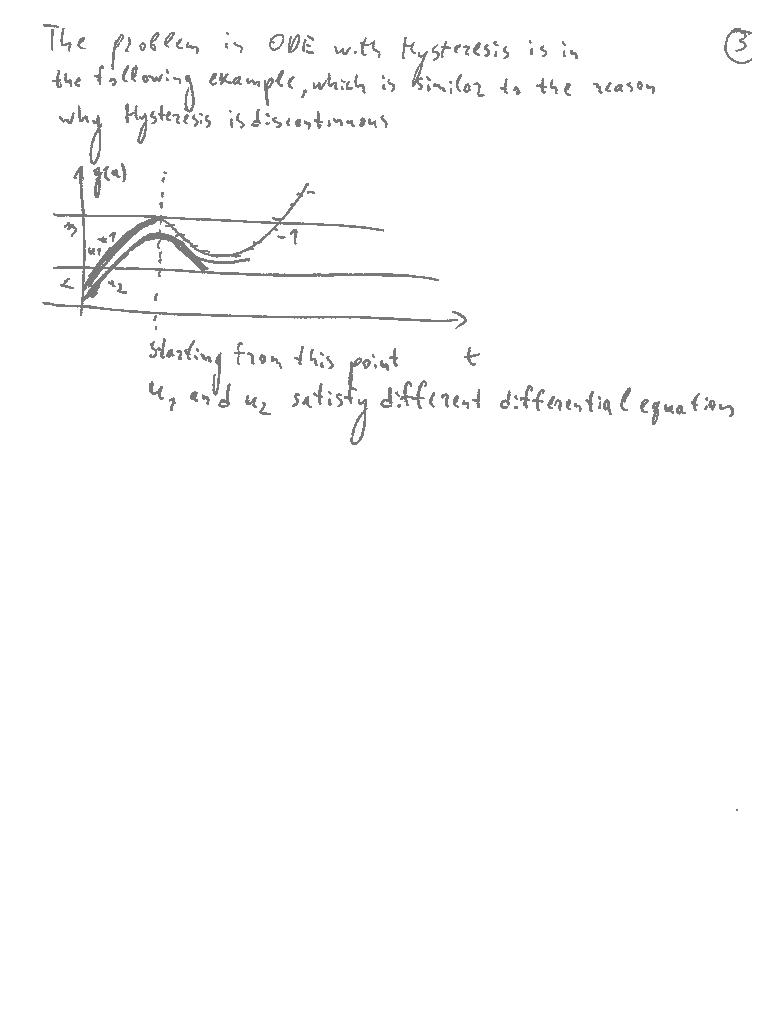 The problem in ODE with Hysteresis is in
3
the following example, which is similar to the reason
why Hysteresis is discontinuous
g(u)
u1
-1
u2
t
starting from this point
u1 and u2 satisfy different differential equations